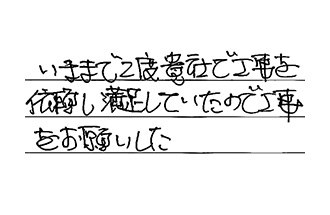 いままで2度貴社で工事を
依頼し満足していたので工事
をお願いした